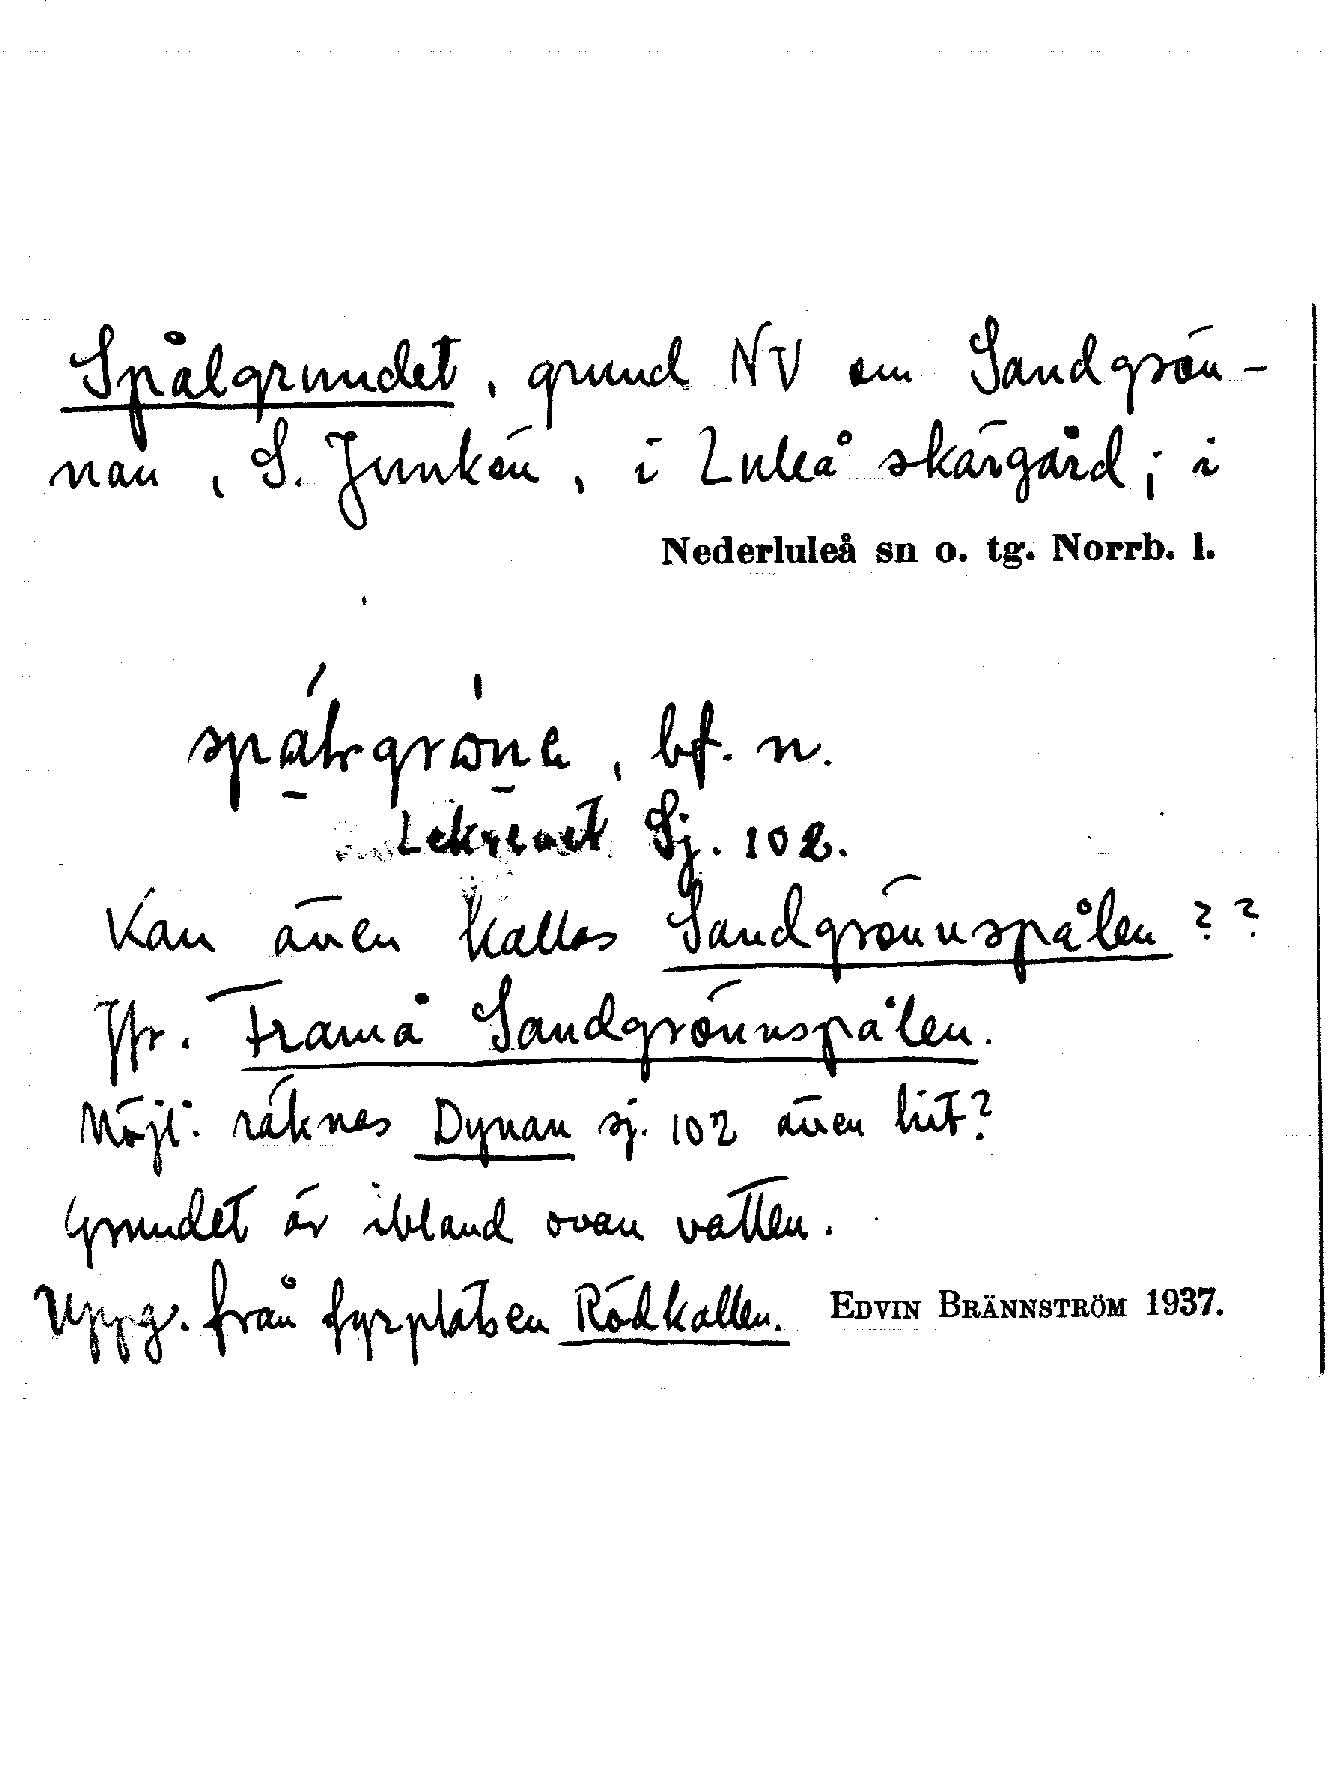 Spålgrundet, grund NV om Sandgrön-
nan, S. Junkön, i Luleå skärgård; i
Nederluleå sn o. tg. Norrb. l.
bf. n.
Sj. 102.
Kan även kallas Sandgrönnspålen ??
Jfr. Framå Sandgrönnspålen.
Möjl. räknas Dynan sj. 102 även hit?
Grundet är ibland ovan vatten.
Uppg. från fyrplatsen Rödkallen. EDVIN BRÄNNSTRÖM 1937.